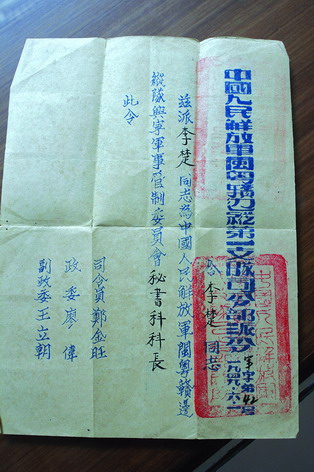 中國人民解放軍閩粤贛边縱第一支隊司令部派令
軍字第42號
一九四九・六・一
令李楚同志
茲派李楚同志為中國人民解放軍閩粤贛邊
縱隊興寧軍事管制委員會秘書科科長
此令
司令員鄭金旺
政委廖偉
副政委王立朝